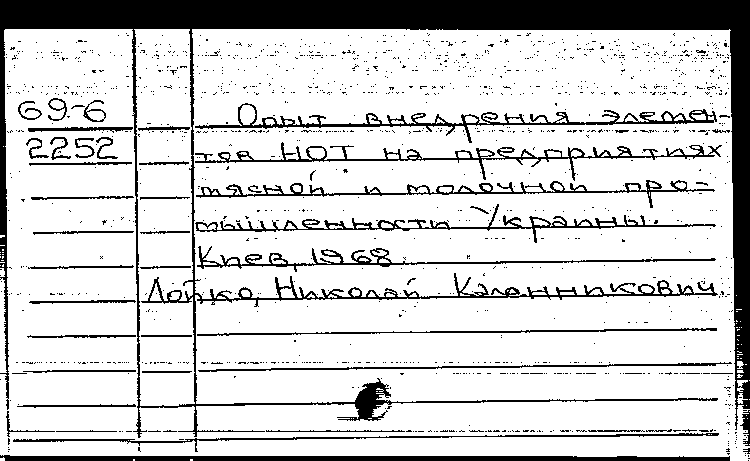 69-6
Опыт внедрения элемен-
2252
тов НОТ на предприятиях
мясной и молочной про-
мышленности Украины.
Киев, 1968.
Лойко, Николай Каленникович.